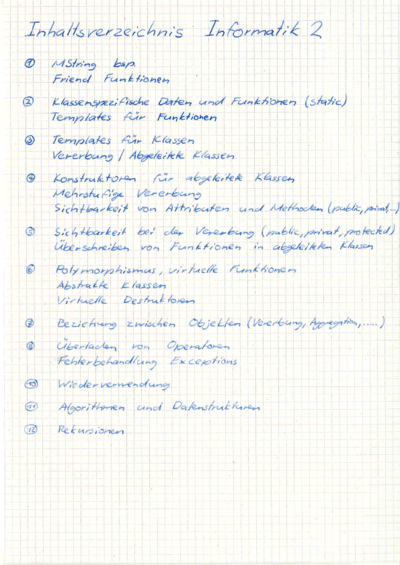 Inhaltsverzeichnis Informatik 2
① MString bsp.
Friend Funktionen
② Klassenspezifische Daten und Funktionen (static)
Templates für Funktionen
③ Templates für Klassen
Vererbung / Abgeleitete Klassen
④ Konstruktoren für abgeleitete Klassen
Mehrstufige Vererbung
Sichtbarkeit von Attributen und Methoden (public, privat,...)
⑤ Sichtbarkeit bei der Vererbung (public, privat, protected)
Überschreiben von Funktionen in abgeleiteten Klassen
⑥ Polymorphismus, virtuelle Funktionen
Abstrakte Klassen
Virtuelle Destruktoren
⑦ Beziehung zwischen Objekten (Vererbung, Aggregation, .....)
⑧ Überladen von Operatoren
Fehlerbehandlung Exceptions
⑩ Wiederverwendung
⑪ Algorithmen und Datenstrukturen
⑫ Rekursionen